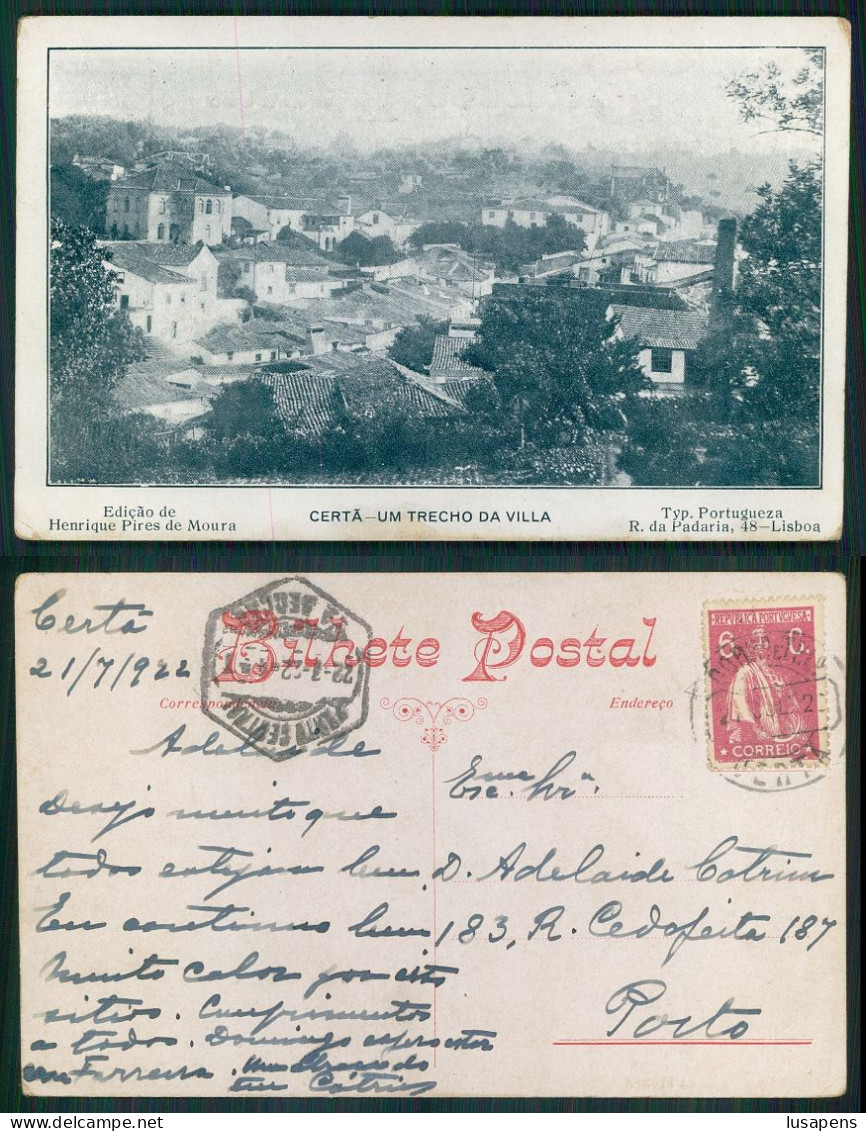 Edição de
Henrique Pires de Moura
CERTÃ—UM TRECHO DA VILLA
Typ. Portugueza
R. da Padaria, 48—Lisboa
Certã
21/7/922
Bilhete Postal
Correspondencia
Endereço
REPUBLICA PORTUGUESA
6 C.
CORREIO
Adelaide
Desejo muito que
todos estejam bem.
Eu continuo bem
Muito calor por estes
sitios. Cumprimentos
a todos. Domingo espero estar
em Ferreira. Um abraço do
teu
Exma. Sra.
D. Adelaide Cotrim
183, R. Cedofeita 187
Porto
lusapens